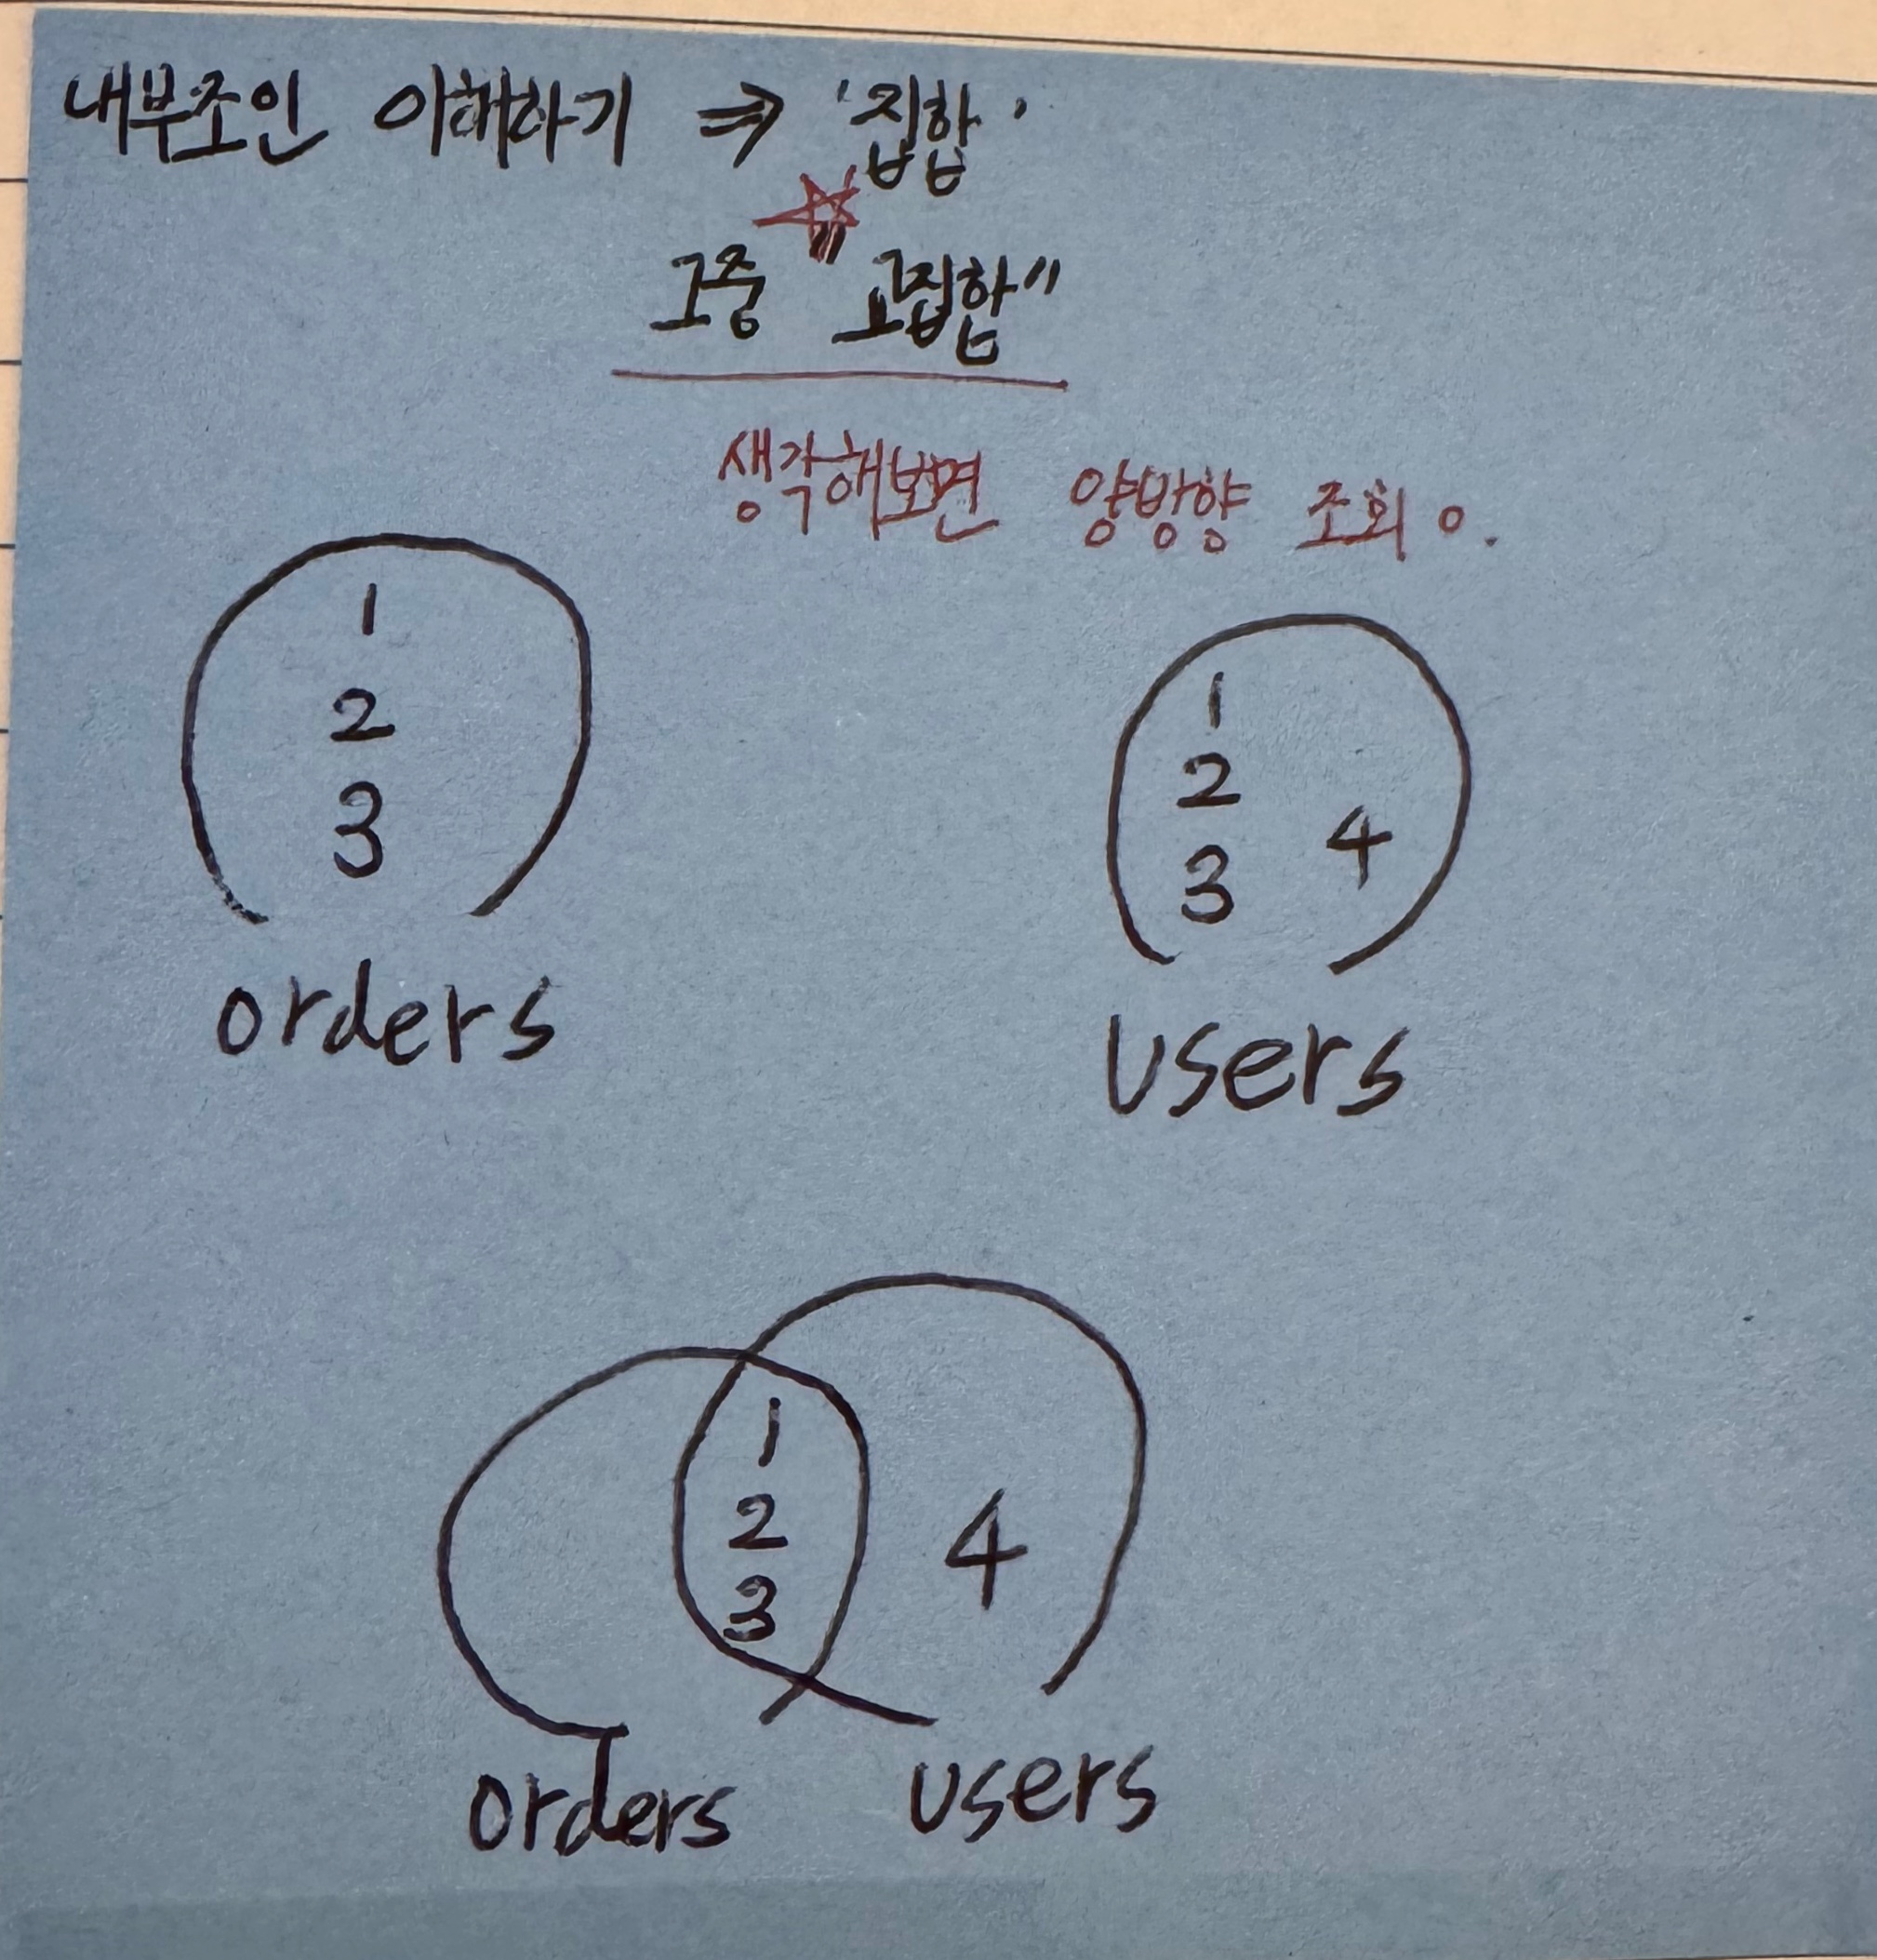 내부조인 이해하기 ⇒ '집합'
그중 "교집합"
생각해보면 양방향 조회 o.
1
2
3
orders
1
2
3 4
users
1
2 4
3
orders users